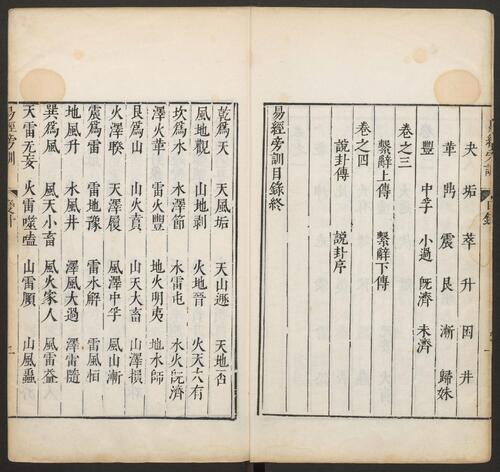 夬 垢 萃 升 困 井
革 鼎 震 艮 漸 歸妹
豐 中孚 小過 旣濟 未濟
卷之三
繫辭上傳 繫辭下傳
卷之四
說卦傳 說卦序
易經旁訓目錄終
乾爲天 天風垢 天山遯 天地否
風地觀 山地剥 火地晉 火天大有
坎爲水 水澤節 水雷屯 水火旣濟
澤火革 雷火豐 地火明夷 地水師
艮爲山 山火賁 山天大畜 山澤損
火澤睽 天澤履 風澤中孚 風山漸
震爲雷 雷地豫 雷水解 雷風恒
地風升 水風井 澤風大過 澤雷隨
巽爲風 風天小畜 風火家人 風雷益
天雷无妄 火雷噬嗑 山雷頤 山風蠱
易經旁訓